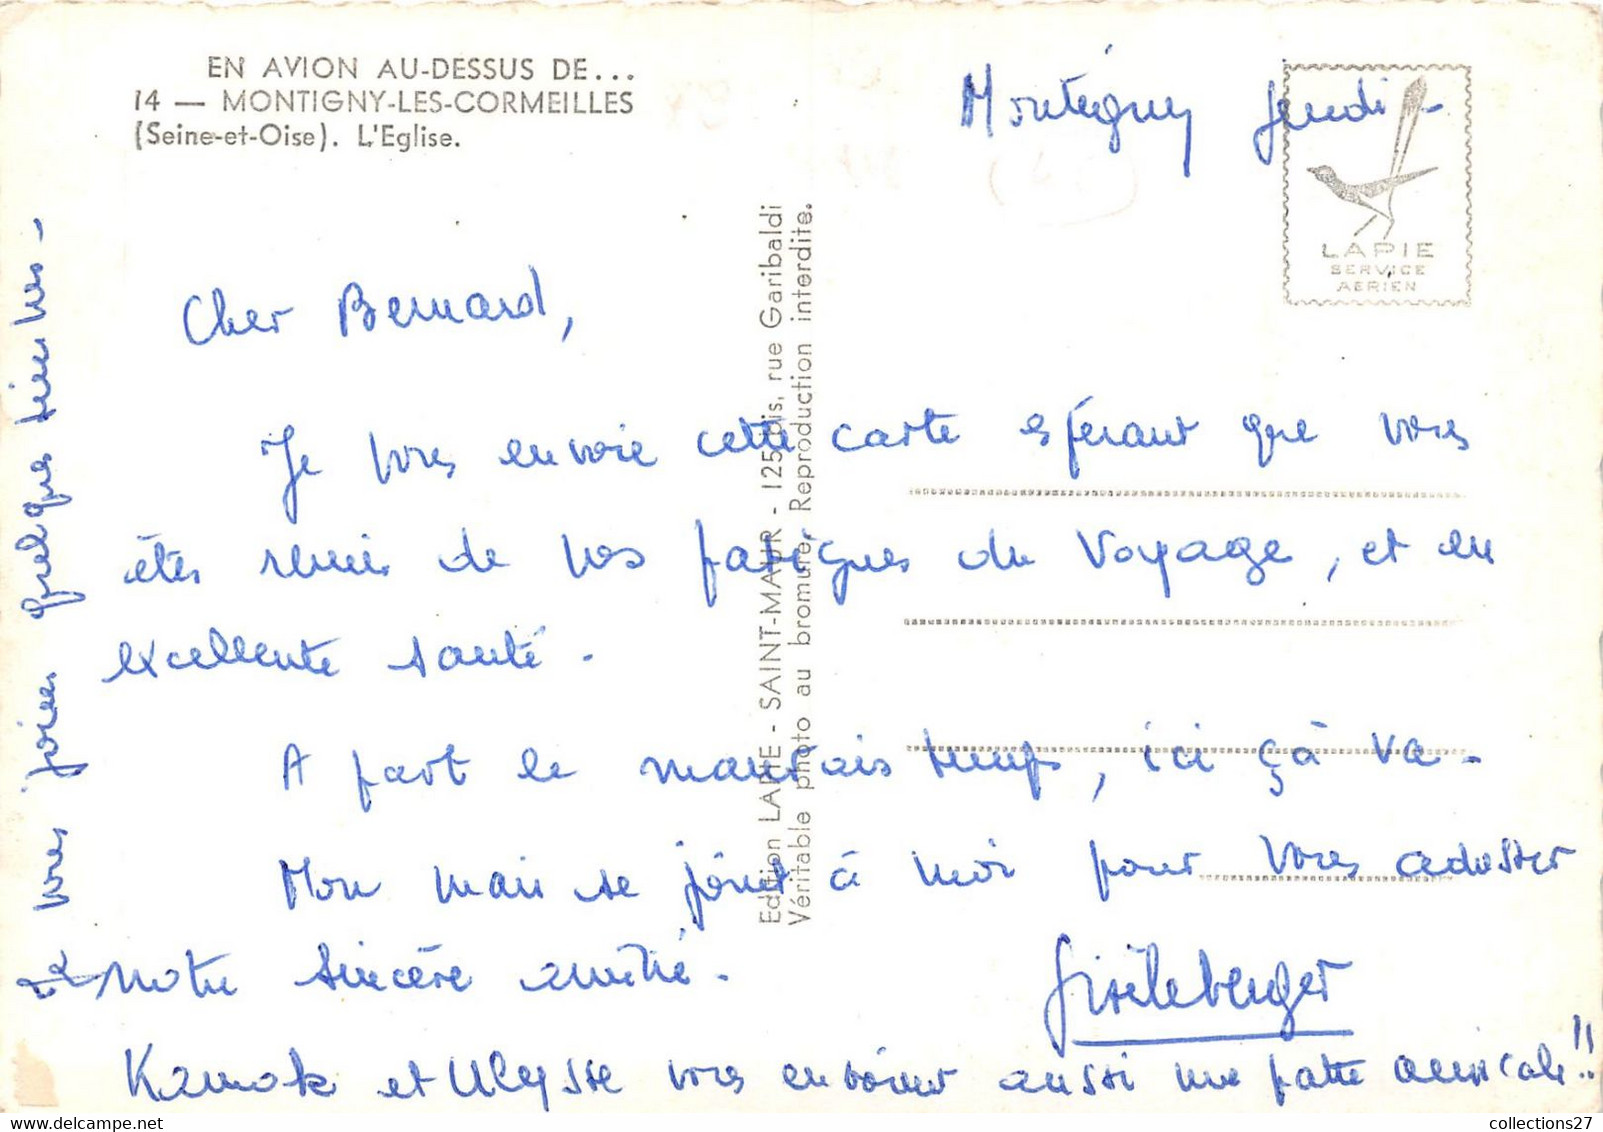 EN AVION AU-DESSUS DE...
14 — MONTIGNY-LES-CORMEILLES
(Seine-et-Oise). L'Eglise.
Montigny Jeudi -
LAPIE
SERVICE
AERIEN
Cher Bernard,
Je vous envoie cette carte espérant que vous
êtes remis de vos fatigues du voyage, et en
excellente santé.
A part le mauvais temps, ici çà va.
Mon mari se joint à moi pour vous adresser
notre sincère amitié.
Gisèle berger
Kamok et Ulysse vous envoient aussi une patte amicale!!
vous quelques
Edition LAPIE - SAINT-MAUR - 125 bis, rue Garibaldi
Véritable photo au bromure. Reproduction interdite.
collections27